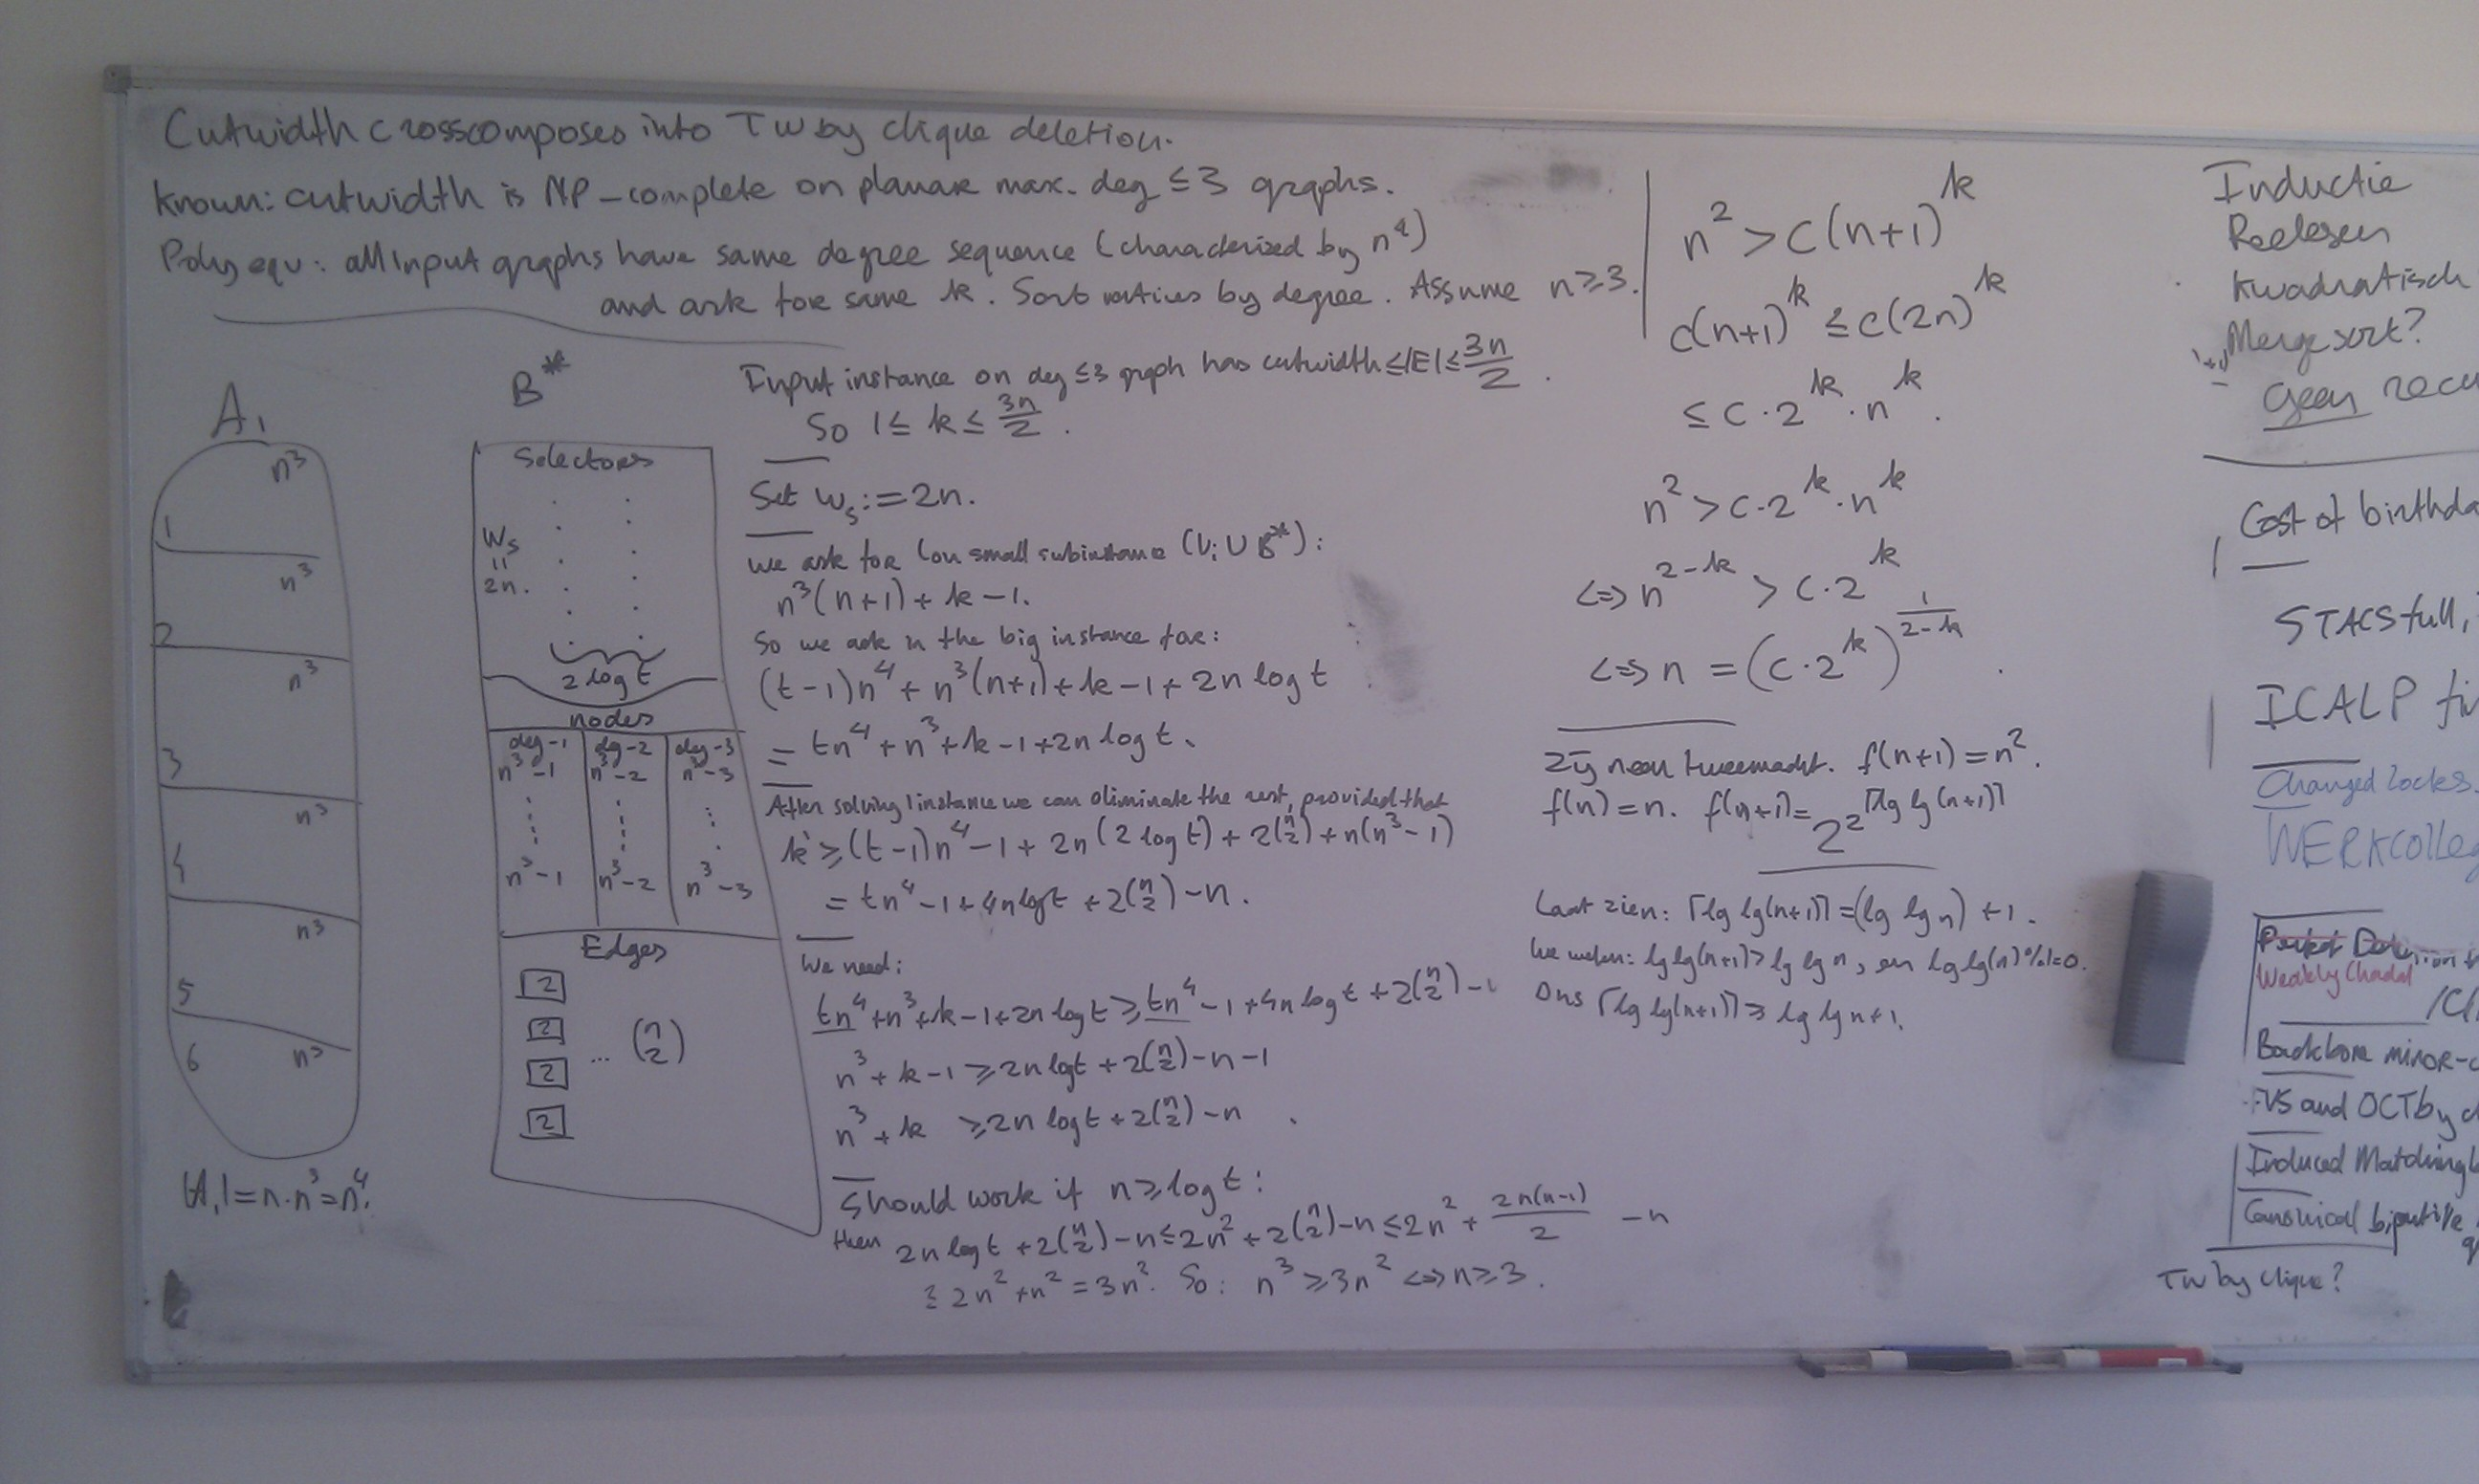 Cutwidth crosscomposes into TW by clique deletion.
Known: cutwidth is NP-complete on planar max. deg ≤ 3 graphs.
Poly equ: all input graphs have same degree sequence (characterized by n⁴)
and ask for same k. Sort vertices by degree. Assume n ≥ 3.
A₁
n³
1
n³
2
n³
3
n³
4
n³
5
n³
6
|A₁| = n·n³ = n⁴.
B*
Selectors
Ws
=
2n.
2 log t
nodes
deg-1 deg-2 deg-3
n³-1 n³-2 n³-3
n³-1 n³-2 n³-3
Edges
2
2
2 ... (n 2)
2
Input instance on deg ≤ 3 graph has cutwidth ≤ |E| ≤ 3n/2.
So 1 ≤ k ≤ 3n/2.
Set Ws := 2n.
We ask for (on small subinstance (Vi ∪ B*):
n³(n+1) + k - 1.
So we ask in the big instance for:
(t-1)n⁴ + n³(n+1) + k - 1 + 2n log t
= tn⁴ + n³ + k - 1 + 2n log t.
After solving 1 instance we can eliminate the rest, provided that
k' ≥ (t-1)n⁴ - 1 + 2n(2 log t) + 2(n 2) + n(n³-1)
= tn⁴ - 1 + 4n log t + 2(n 2) - n.
We need:
tn⁴ + n³ + k - 1 + 2n log t ≥ tn⁴ - 1 + 4n log t + 2(n 2) -
n³ + k - 1 ≥ 2n log t + 2(n 2) - n - 1
n³ + k ≥ 2n log t + 2(n 2) - n.
Should work if n ≥ log t:
then 2n log t + 2(n 2) - n ≤ 2n² + 2(n 2) - n ≤ 2n² + 2n(n-1)/2 - n
≤ 2n² + n² = 3n². So: n³ ≥ 3n² <=> n ≥ 3.
n² > c(n+1)^k
c(n+1)^k ≤ c(2n)^k
≤ c·2^k·n^k.
n² > c·2^k·n^k
<=> n^(2-k) > c·2^k
<=> n = (c·2^k)^(1/(2-k)).
Zij n een tweemacht. f(n+1) = n².
f(n) = n. f(n+1) = 2^2^⌈lg lg(n+1)⌉
Laat zien: ⌈lg lg(n+1)⌉ = (lg lg n) + 1.
We weten: lg lg(n+1) > lg lg n, en lg lg(n) % 1 = 0.
Dus ⌈lg lg(n+1)⌉ ≥ lg lg n + 1.
Inductie
Reeksen
Kwadratisch
Mergesort?
Geen recu
Cost of birthda
STACS full,
ICALP
Changed locks.
WERKcolleg
Weakly Chordal
Backbone minor-
FVS and OCT by
Induced Matching
Canonical bipartite
TW by clique?